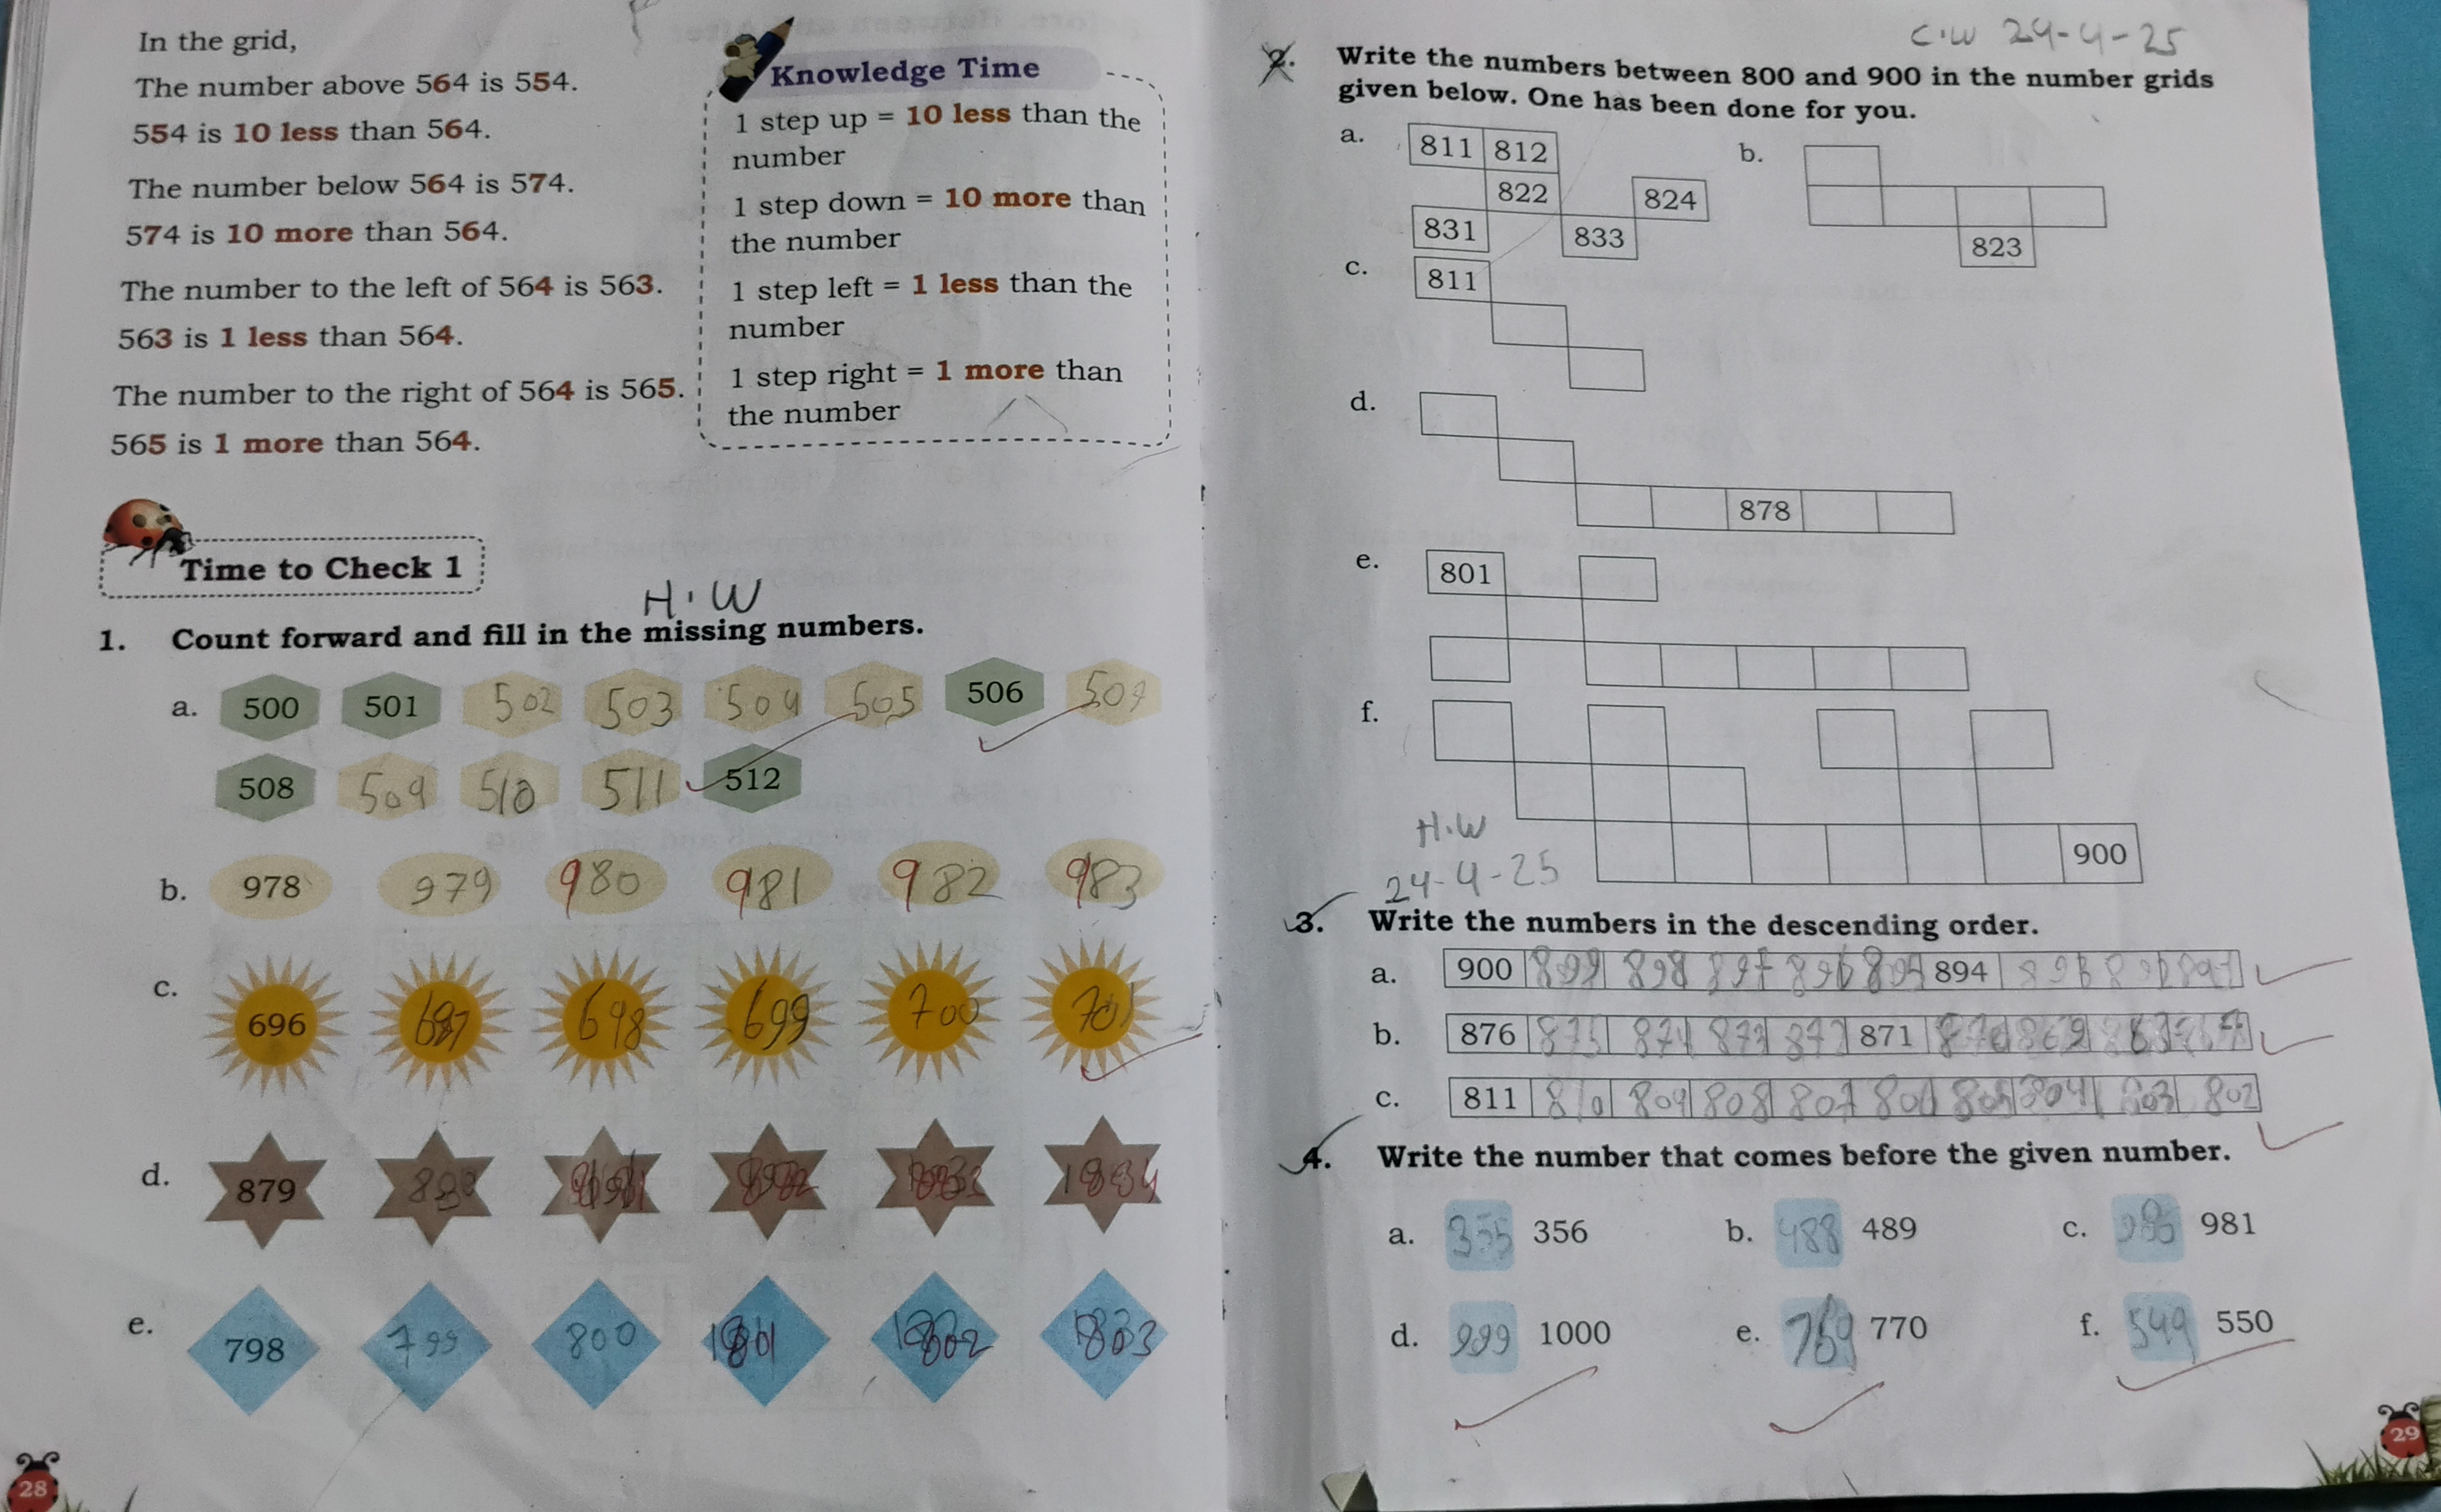 In the grid,
The number above 564 is 554.
554 is 10 less than 564.
The number below 564 is 574.
574 is 10 more than 564.
The number to the left of 564 is 563.
563 is 1 less than 564.
The number to the right of 564 is 565.
565 is 1 more than 564.
Knowledge Time
1 step up = 10 less than the
number
1 step down = 10 more than
the number
1 step left = 1 less than the
number
1 step right = 1 more than
the number
Time to Check 1
H.W
1. Count forward and fill in the missing numbers.
a. 500 501 502 503 504 505 506 507
508 509 510 511 512
b. 978 979 980 981 982 983
c. 696 697 698 699 700 701
d. 879 880
e. 798 799 800 801 802 803
28
C.W 24-4-25
2. Write the numbers between 800 and 900 in the number grids
given below. One has been done for you.
a. 811 812
822 824
831 833
b.
823
c. 811
d.
878
e. 801
f.
900
H.W
24-4-25
3. Write the numbers in the descending order.
a. 900 899 898 897 896 895 894 893 892 891
b. 876 875 874 873 872 871 870 869
c. 811 810 809 808 807 806 805 804 803 802
4. Write the number that comes before the given number.
a. 355 356 b. 488 489 c. 981
d. 999 1000 e. 769 770 f. 549 550
29